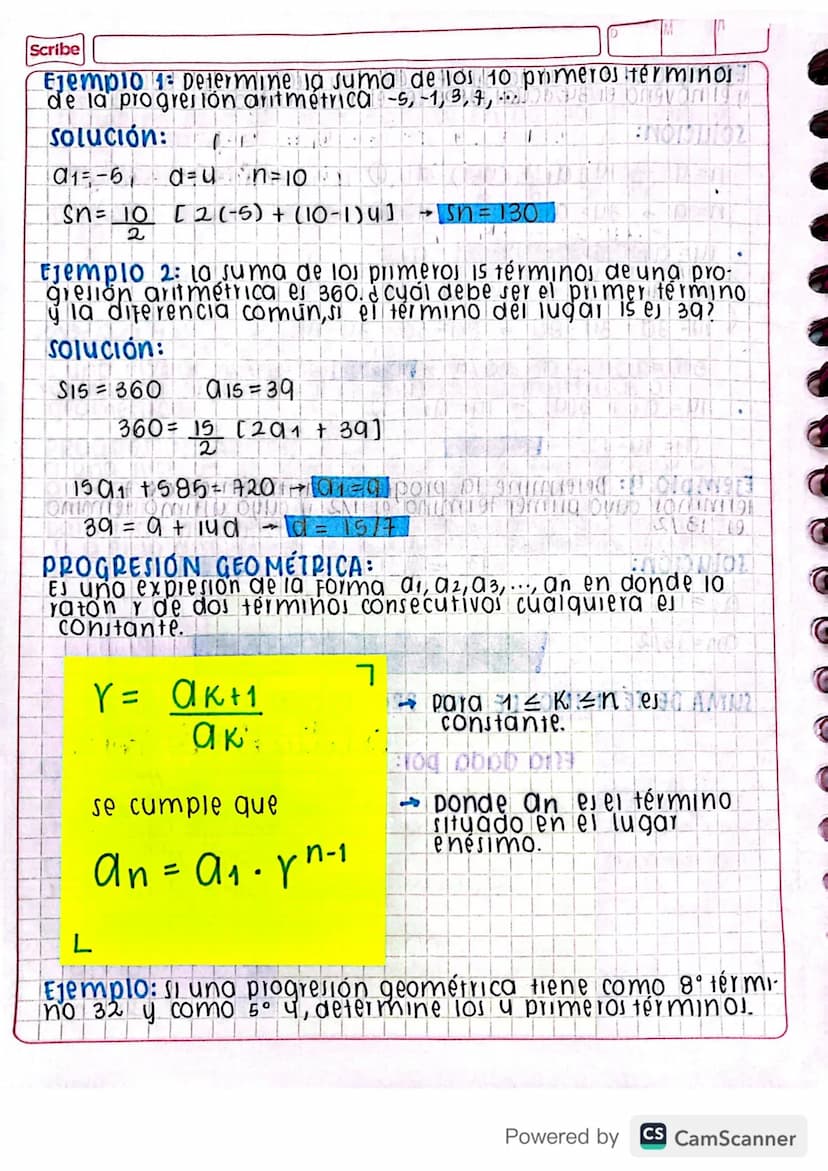 Scribe
Ejemplo 1: Determine la suma de los 10 primeros términos
de la progresión aritmétrica -5,-1,3,7,...
solución:
a1=-5, d=4 n=10
Sn= 10/2 [2(-5) + (10-1)4] → Sn=130
Ejemplo 2: la suma de los primeros 15 términos de una pro-
gresión aritmétrica es 360. ¿cuál debe ser el primer término
y la diferencia común, si el término del lugar 15 es 39?
solución:
S15 = 360 a15 = 39
360 = 15/2 [2a1 + 39]
15a1 + 585 = 720 → a1=9
39 = 9 + 14d → d = 15/7
PROGRESIÓN GEOMÉTRICA:
Es una expresión de la forma a1, a2, a3, ..., an en donde la
ratón r de dos términos consecutivos cualquiera es
constante.
r = aK+1/aK
→ para 1 ≤ K ≤ n es
constante.
se cumple que
an = a1 · r^n-1
→ Donde an es el término
situado en el lugar
enésimo.
Ejemplo: si una progresión geométrica tiene como 8° térmi-
no 32 y como 5° 4, determine los 4 primeros términos.
Powered by CS CamScanner